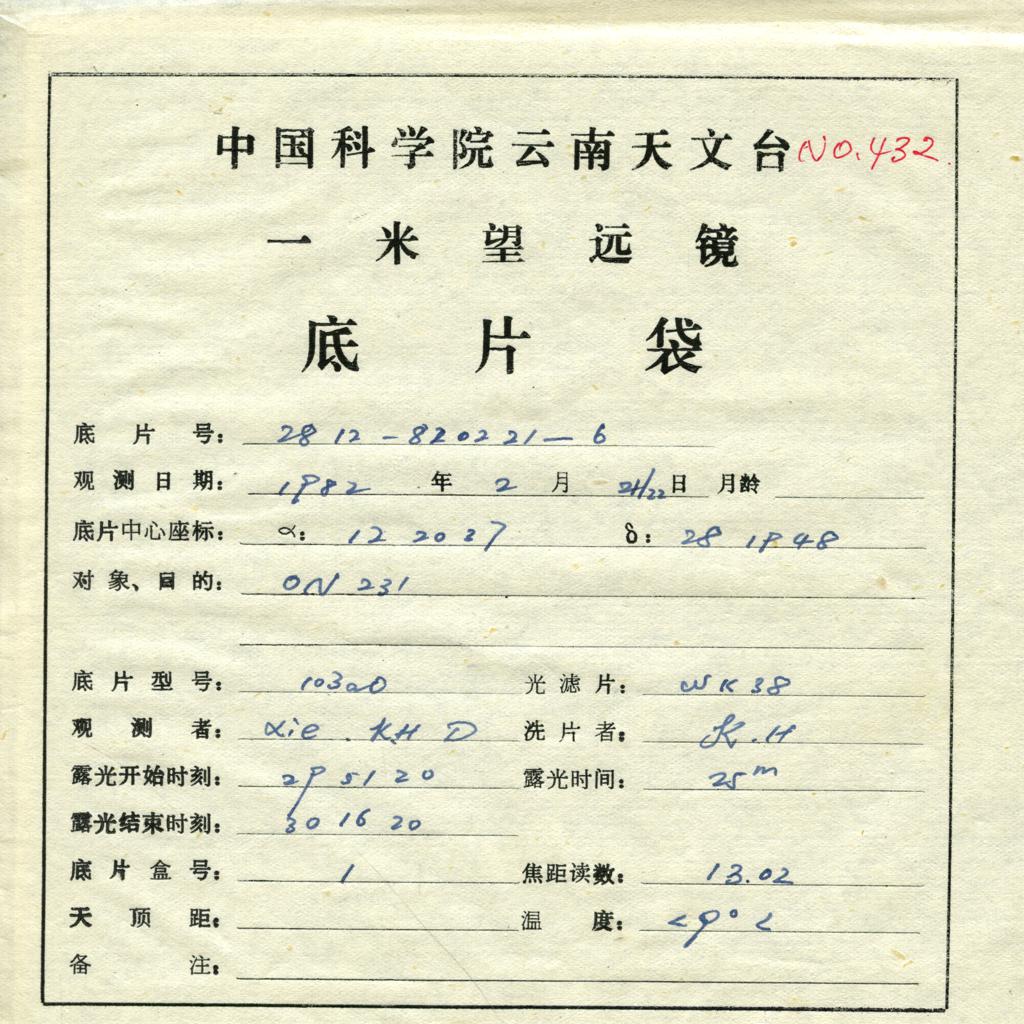 中国科学院云南天文台 NO.432
一米望远镜
底片袋
底片号： 2812-820221-6
观测日期： 1982 年 2 月 21/22 日 月龄
底片中心座标： α： 12 20 37 δ： 28 19 48
对象、目的： ON 231
底片型号： 103aO 光滤片： WK 38
观测者： Xie . KH D 洗片者： K.H
露光开始时刻： 29 51 20 露光时间： 25m
露光结束时刻： 30 16 20
底片盒号： 1 焦距读数： 13.02
天顶距： 温度： 9°
备注：